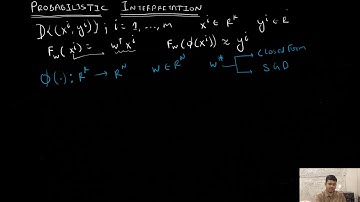 PROBABILISTIC INTERPRETATION
D{(xⁱ, yⁱ)} ; i = 1, ..., m xⁱ ∈ Rᵏ yⁱ ∈ R
F_w(xⁱ) = wᵀxⁱ F_w(ϕ(xⁱ)) ≈ yⁱ
ϕ(·) : Rᵏ → Rᴺ w ∈ Rᴺ w* closed form
SGD